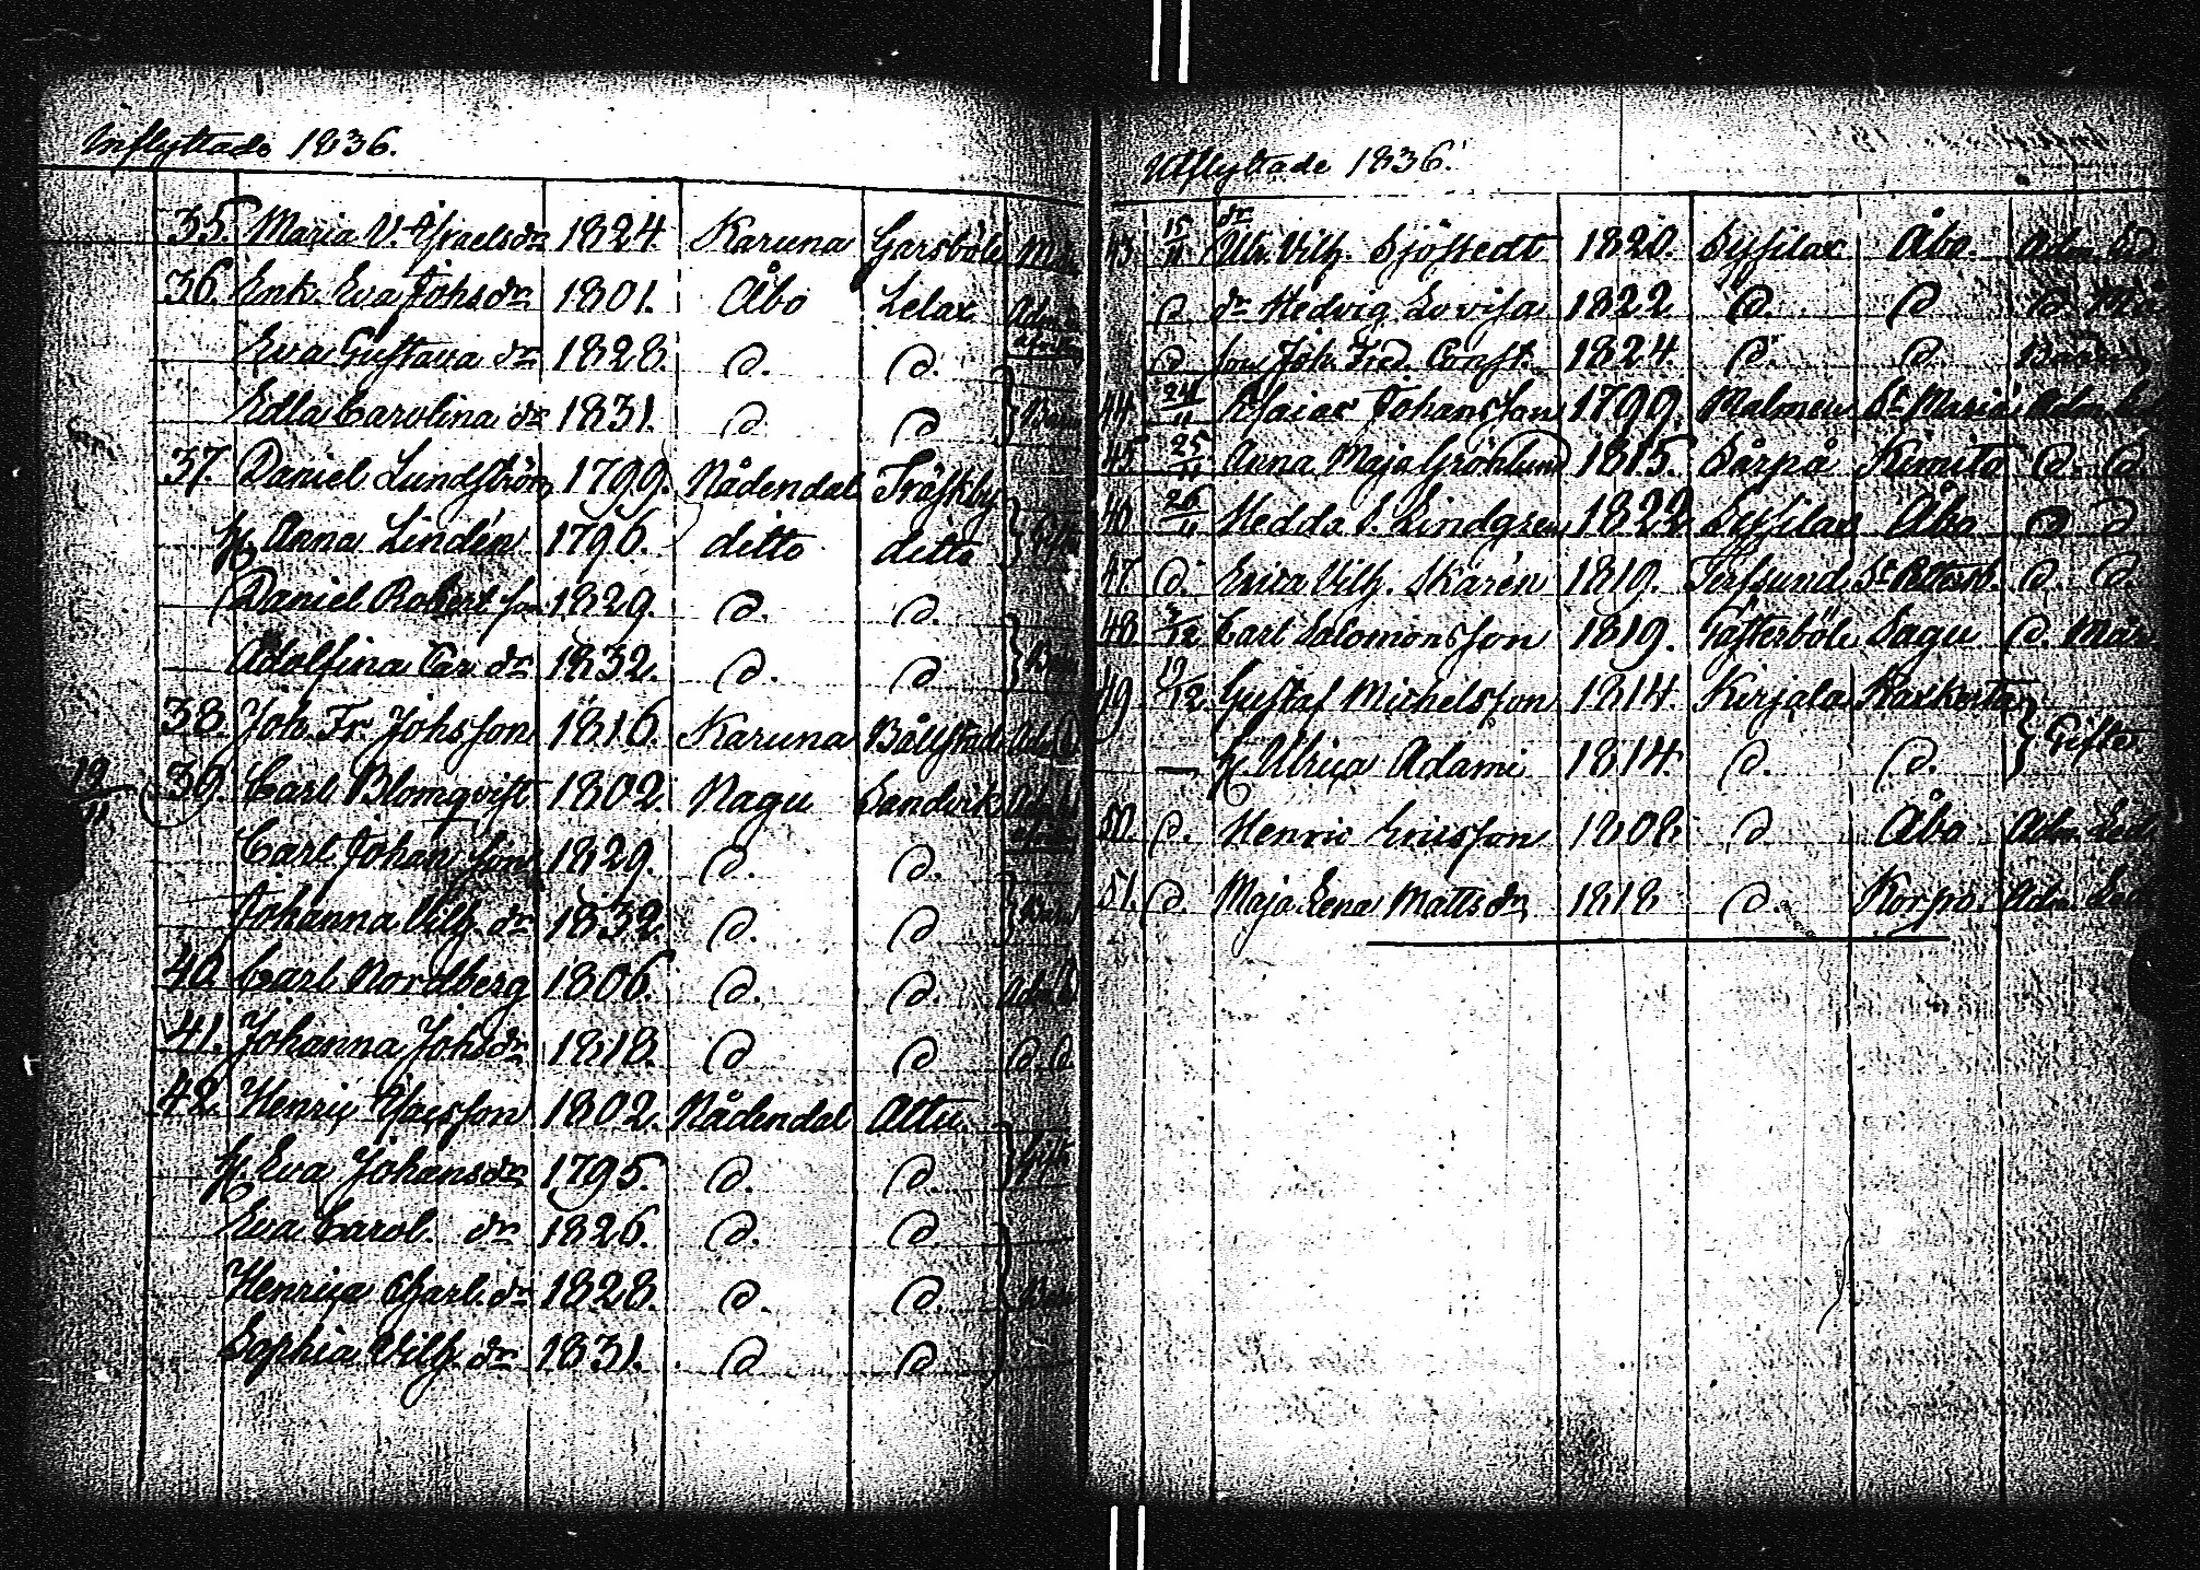 Inflyttade 1836.
35. Maria V. Israelsdr 1824. Karuna Garsböle
36. Enk. Eva Johsdr 1801. Åbo Lelax
Eva Gustava dr 1828. d. d.
Edla Carolina dr 1831. d. d.
37. Daniel Lundström 1799. Nådendal Träskby
h. Anna Lindén 1796. ditto ditto
Daniel Robert son 1829. d. d.
Adolfina Car. dr 1832. d. d.
38. Joh. Fr. Johsson 1816. Karuna Böllstad
19/11 39. Carl Blomqvist 1802. Nagu Sandvik
Carl Johan son 1829. d. d.
Johanna Vilh. dr 1832. d. d.
40. Carl Nordberg 1806. d. d.
41. Johanna Johsdr 1818. d. d. d. d.
42. Henric Isacsson 1802. Nådendal Attu.
h. Eva Johansdr 1795. d. d.
Eva Carol. dr 1826. d. d.
Henrica Charl. dr 1828. d. d.
Sophia Vilh. dr 1831. d. d.
Utflyttade 1836.
43. 15/11 dr Ulr. Vilh. Sjöstedt 1820. Sysilax Åbo.
d. dr Hedvig Lovisa 1822 d. d
d. son Joh. Fred. Const. 1824. d. d. Barn
44. 24/11 Esaias Johansson 1799. Malmen St Mariæ
45. 25/11 Anna Maja Grönlund 1815. Särpå Kimito d. d.
46. 26/11 Hedda S. Lindgren 1822 Sysilax Åbo d d
47. d. Erica Vilh. Skarén 1819. Terfsund St Petersb. d. d.
48. 3/12 Carl Salomonsson 1819. Tafterböle Sagu d.
49 19/12 Gustaf Michelsson 1814. Kirjala Raxkerta
— h. Ulrica Adami 1814. d. d. Gifte
50. d. Henric Ericsson 1808. d Åbo Adm. Led.
51. d. Maja Lena Mattsdr 1818 d. Korpo Adm. Led.